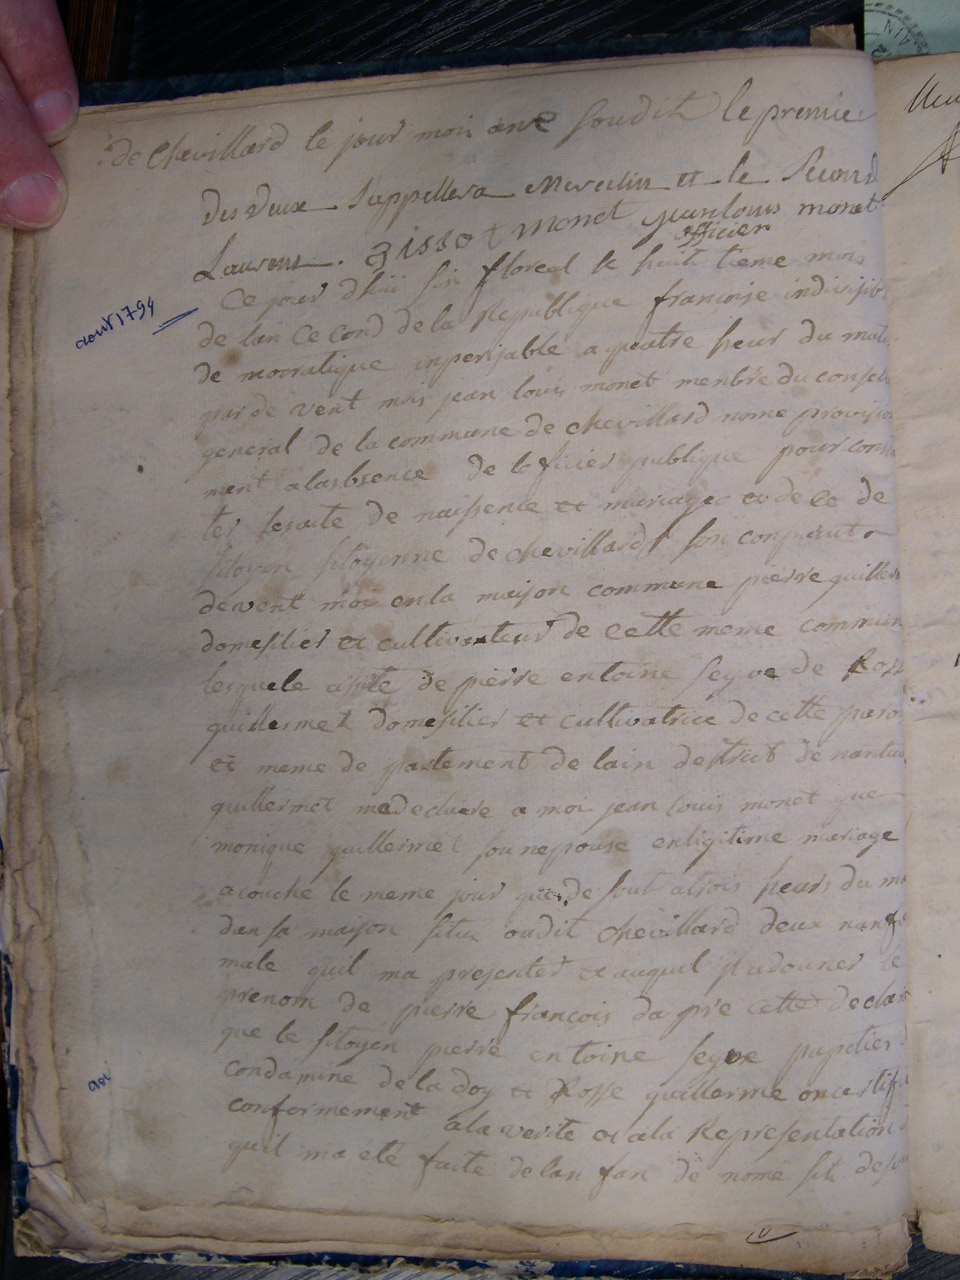 de Chevillard le jour mois ans soudit le premie
des deux sappellera Mercelin et le Second
Laurent. monet jeanlouis monet
officier
Ce jour dhui sin floreal le huit tieme mois
aout 1794
de lan ce cond de la Republique françoise indivisib
de mocratique imperisable a quatre heur du mati
par de vent moi jean louis monet menbre du conseil
general de la commune de chevillard nome provision
ment alasbsence de loficier publique pour cons
ter lesaite de naissence et mariages et de ce de
sitoyen sitoyenne de chevillard son conparut
devent moi en la maison commune pierre quillerm
domesilier et cultivateur de cette meme commun
lesquele asisté de pierre entoine seyve de Ross
quillermet domesilier et cultivatrice de cette paro
et meme de partement de lain destrict de nantu
quillermet medeclaire a moi jean louis monet que
monique quillermet son nepouse enligitime mariage
acouche le meme jour que de sout atrois heurs du m
dan sa maison situé oudit chevillard deux nenf
male quil ma presenter et auquel il adouner le
prenom de pierre françois da pré cette declar
que le sitoyen pierre entoine seyve papetier
condamine de la doy et Rosse quillerme oncertifi
conformement ala verité et ala Representation
quil ma eté faite de lan fan de nomé sit de